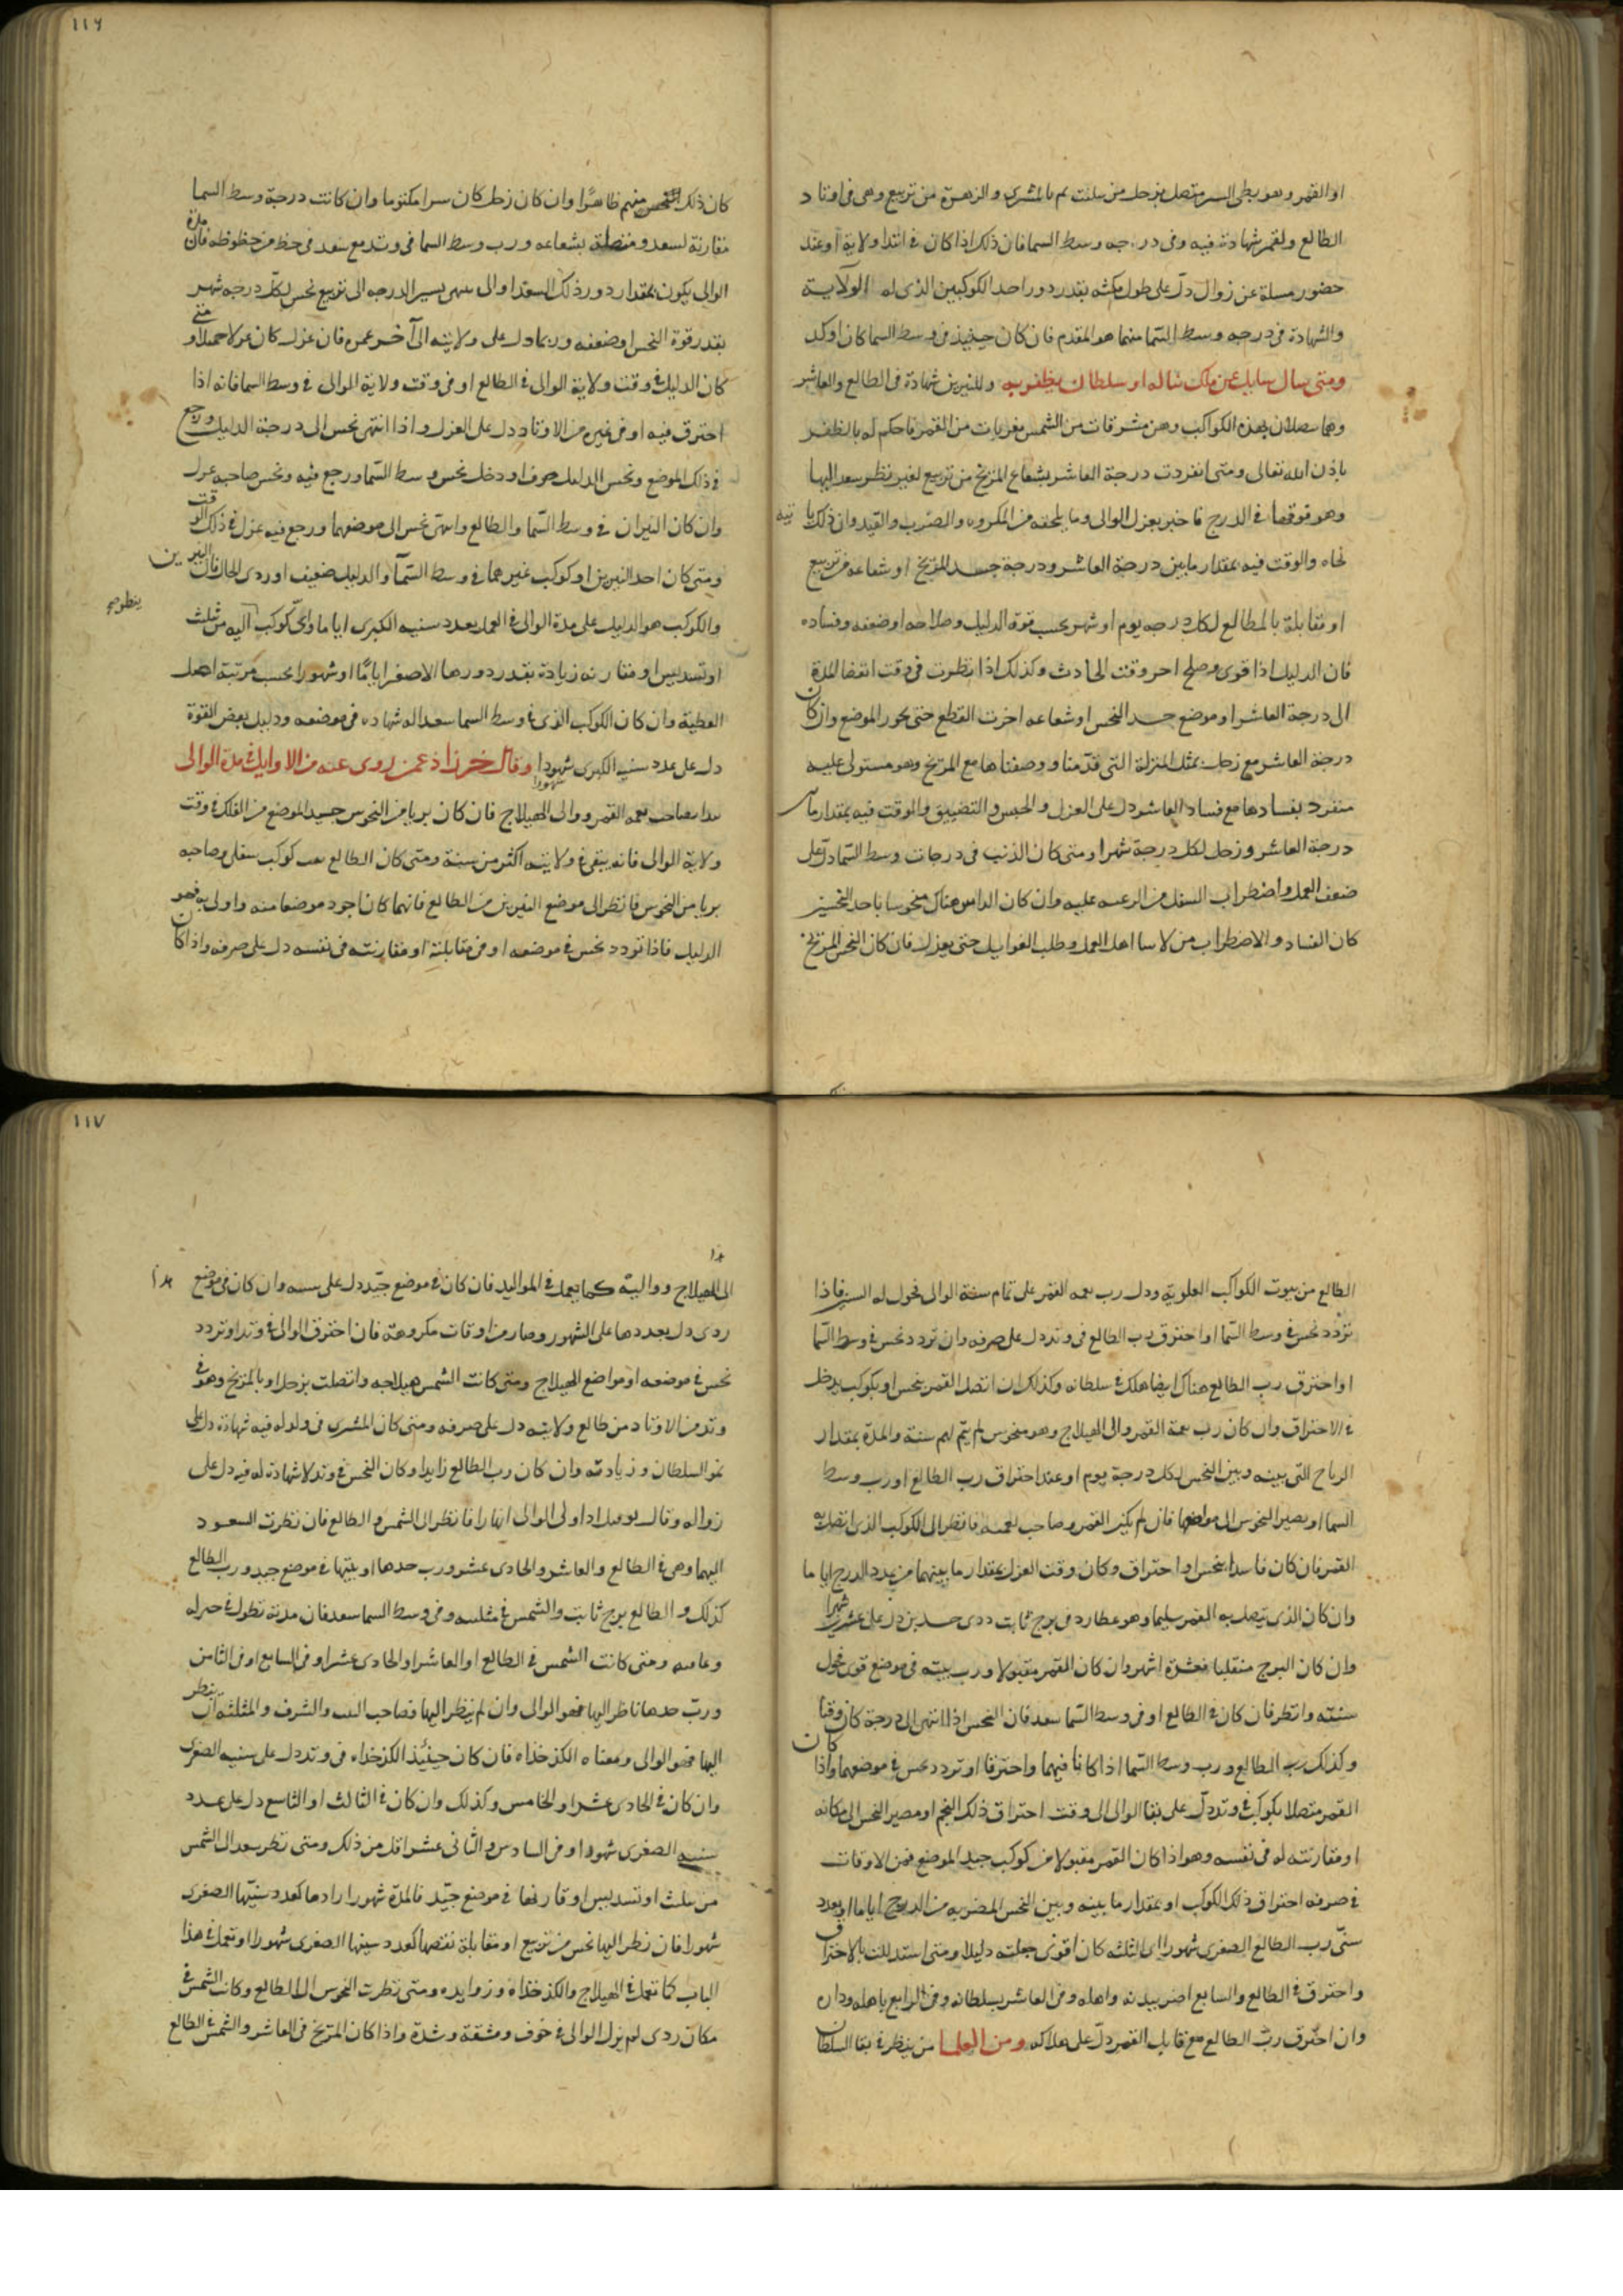 ١١٦
او القمر وهو بطى السير متصل بزحل من تثليث ثم بالمشترى والزهرة من تربيع وهى فى اوتاد
الطالع ولقمر شهادة فيه وفى درجه وسط السما فان ذلك اذا كان فى ابتدا ولاية اوعند
حضور مسلة عن زوال دل على طول مكثه بقدر دور احد الكوكبين الذى له الولاية
والشهادة فى درجه وسط السما منهما هو المقدم فان كان حينيذ فى وسط السما كان اوكد
ومتى سال سايل عن ملك شاله او سلطان يظفر به وللنيرين شهادة فى الطالع والعاشر
وهما متصلان بهذه الكواكب وهن مشرقات من الشمس مغربات من القمر فاحكم له بالظفر
باذن الله تعالى ومتى انفردت درجة العاشر بشعاع المريخ من تربيع لغير نظر سعد اليها
وهو فوقها فى الدرج فاخبر بعزل الوالى وما يلحقه من المكروه والضرب والقيد وان ذلك يا تيه
نجاه والوقت فيه بمقدار ما بين درجة العاشر ودرجة جسد المريخ او شعاعه من تربيع
او مقابلة بالمطالع لكل درجه يوم او شهر بحسب قوة الدليل وصلاحه او ضعفه وفساده
فان الدليل اذا قوى وصلح اخر وقت الحادث وكذلك اذا نظرت فى وقت انقضا المدة
الى درجة العاشر او موضع جسد النحس او شعاعه اخرت القطع حتى يحور الموضع وان كان
درجة العاشر مع زحل بمثل المنزلة التى قدمنا ووصفناها مع المريخ وهو مستولى عليه
منفرد بفسادها مع فساد العاشر دل على العزل والحبس والتضييق والوقت فيه بمقدار ما بين
درجة العاشر وزحل لكل درجة شهرا ومتى كان الذنب فى درجات وسط السما دل على
ضعف العمل واضطراب السفل من الرعيه عليه وان كان الراس هناك منحوسا باحد النحسين
كان الفساد والاضطراب من لاسا اهل العمل وطلب الغوايل حتى يعزل فان كان النحس المريخ
كان ذلك النحس منهم ظاهرا وان كان زحل كان سرا مكتوما وان كانت درجة وسط السما
مقارنة لسعد ومتصلة بشعاعه ورب وسط السما فى وتد مع سعد فى حظ من حظوظه فان مدة
الوالى يكون بمقدار دور ذلك السعد او الى منتهى يسير الدرجه الى تربيع نحس لكل درجه شهر
بقدر قوة النحس او ضعفه وربما دل على ولايته الى آخر عمره فان عزل كان عزلا جميلا ومتى
كان الدليل فى وقت ولاية الوالى فى الطالع او فى وقت ولاية الوالى فى وسط السما فانه اذا
احترق فيه او فى غيره من الاوتاد دل على العزل واذا انتهى نحس الى درجة الدليل ورجع
فى ذلك الموضع ونحس الدليل صرف او دخل نحس وسط السما ورجع فيه ونحس صاحبه عزل
وان كان النيران فى وسط السما والطالع وانتهى نحس الى موضعهما ورجع فيه عزل فى ذلك الوقت
ومتى كان احد النيرين او كوكب غيرهما فى وسط السما والدليل ضعيف او ردى الحال فان النيرين
والكوكب هو الدليل على مدة الوالى فى العمل بعدد سنيه الكبرى اياما واى كوكب اليه من تثليث
ينظر صح
او تسديس او مقارنه زيادة بقدر دورها الاصغر اياما او شهورا بحسب مرتبة اهل
العطية وان كان الكوكب الذى فى وسط السما سعدا له شهاده فى موضعه ودليل بعض القوة
دل على عدد سنيه الكبرى شهورا وقال خرزاذ عمن روى عنه من الاوايل فى مدة الوالى
شهورا
ابدا بصاحب نيمه القمر ووالى الهيلاج فان كان بريا من النحوس جسيد الموضع من الفلك فى وقت
ولاية الوالى فانه يبقى فى ولايته اكثر من سنة ومتى كان الطالع بيت كوكب سفلى وصاحبه
بريا من النحوس فانظر الى موضع النيرين من الطالع فانهما كان اجود موضعا منه واولى به فهو
الدليل فاذا تردد نحس فى موضعه او فى مقابلته او مقارنته فى نفسه دل على صرفه واذا كان
١١٧
الطالع من بيوت الكواكب العلويه ودل رب نيمه القمر على تمام سنة الوالى فحول له السنه فاذا
تردد نحس فى وسط السما او احترق رب الطالع فى وتد دل على صرفه وان تردد نحس فى وسط السما
او احترق رب الطالع هناك ايضا هلك فى سلطانه وكذلك ان اتصل القمر بنحس او بكوكب يدخل
فى الاحتراق وان كان رب نيمة القمر والى الهيلاج وهو منحوس لم يتم لهم سنة والمدة بمقدار
الرباح التى بينه وبين النحس لكل درجة يوم او عند احتراق رب الطالع او رب وسط
السما او يصير النحوس الى مواضعها فان لم يكن القمر وصاحب نيمه فانظر الى الكوكب الذى اتصل به
القمر فان كان فاسدا بنحس او احتراق وكان وقت العزل بمقدار ما بينهما من عدد الدرج اياما
وان كان الذى يتصل به القمر سليما وهو عطارد فى برج ثابت ذى جسدين دل على عشرين شهرا
وان كان البرج منقلبا فعشرة اشهر وان كان القمر مقبولا ورب بيته فى موضع قوى فحول
سنته وانظر فان كان فى الطالع او فى وسط السما سعد فان النحس اذا انتهى الى درجة كان وقتا
وكذلك رب الطالع ورب وسط السما اذا كانا فيهما واحترقا او تردد نحس فى موضعهما واذا كان
القمر متصلا بكوكب فى وتد دل على بقا الوالى الى وقت احتراق ذلك النجم او مصير النحس الى مكانه
او مقارنته له فى نفسه وهو اذا كان القمر مقبولا من كوكب جيد الموضع فمن الاوقات
فى صرفه احتراق ذلك الكوكب او بمقدار ما بينه وبين النحس المضر به من الدرج اياما او بعدد
سنى رب الطالع الصغرى شهورا اى الثلثه كان اقوى جعلته دليلا ومتى استدللت بالاحتراق
واحترق فى الطالع والسابع اضر ببدنه واهله وفى العاشر بسلطانه وفى الرابع باهله وداره
وان احترق رب الطالع مع قابل القمر دل على هلاكه ومن العلما من ينظر فى بقا السلطان
الى الهيلاج وواليه كما يعمل فى المواليد فان كان فى موضع جيد دل على سنيه وان كان فى موضع
ردى دل بعددها على الشهور وصار من اوقات مكروهة فان احترق الوالى فى وتد او تردد
نحس فى موضعه او مواضع الهيلاج ومتى كانت الشمس هيلاجه واتصلت بزحل او بالمريخ وهو فى
وتد من الاوتاد من طالع ولايته دل على صرفه ومتى كان المشترى فى وتد له فيه شهادة دل على
نمو السلطان وزيادته وان كان رب الطالع زايدا وكان النحس فى وتد لا شهادة له فيه دل على
زواله وقال نوفيل اذا ولى الوالى نهارا فانظر الى الشمس والطالع فان نظرت السعود
اليهما وهى فى الطالع والعاشر والحادى عشر ورب حدها او بيتها فى موضع جيد ورب الطالع
كذلك والطالع برج ثابت والشمس فى مثلثه وفى وسط السما سعد فان مدته تطول فى
ومتى كانت الشمس فى الطالع او العاشر او الحادى عشر او فى السابع او فى الثامن
ورب حدها ناظر اليها فهو الوالى وان لم ينظر اليها فصاحب البيت والشرف والمثلثه اى ينظر
اليها فهو الوالى ومعناه الكدخذاه فان كان حينئذ الكدخذاه فى وتد دل على سنيه الصغرى
وان كان فى الحادى عشر او الخامس وكذلك وان كان فى الثالث او التاسع دل على عدد
سنيه الصغرى شهورا او فى السادس والثانى عشر اقل من ذلك ومتى نظر سعد الى الشمس
من تثليث او تسديس او قارنها فى موضع جيد فالمدة شهورا زادها كعدد سنيها الصغرى
شهورا فان نظر اليها نحس من تربيع او مقابلة نقصها كعدد سنيها الصغرى شهورا او تعمل فى هذا
الباب كما تعمل فى الهيلاج والكدخذاه وزوايده ومتى نظرت النحوس الى الطالع وكانت الشمس فى
مكان ردى لم يزل الوالى فى خوف ومشقة وشدة واذا كان المريخ فى العاشر والشمس فى الطالع